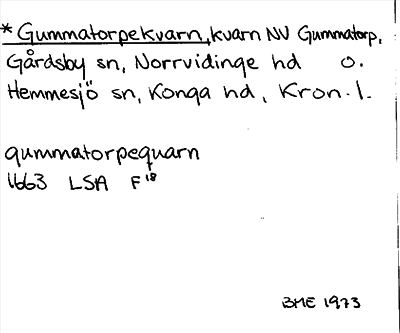 * Gummatorpekvarn, kvarn NV Gummatorp,
Gårdsby sn, Norrvidinge hd o.
Hemmesjö sn, Konga hd, Kron. l.
gummatorpequarn
1663 LSA F18
BME 1973